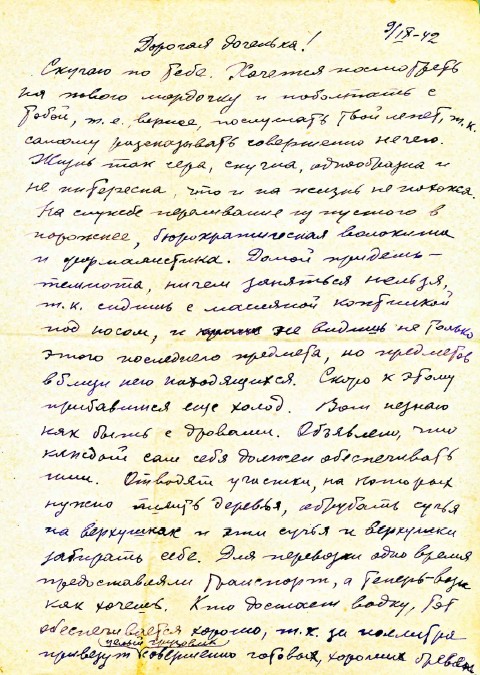 9/IX-42
Дорогая доченька!
Скучаю по тебе. Хочется посмотреть
на твою мордочку и поболтать с
тобой, т.е. вернее, послушать твой лепет, т.к.
самому рассказывать совершенно нечего.
Жизнь так сера, скучна, однообразна и
не интересна, что и на жизнь не похожа.
На службе переливание из пустого в
порожнее, бюрократическая волокита
и формалистика. Домой придешь –
темнота, ничем заняться нельзя,
т.к. сидишь с масляной коптилкой
под носом, и не видишь не только
этого последнего предмета, но предметов
вблизи него находящихся. Скоро к этому
прибавится еще холод. Вот незнаю
как быть с дровами. Объявлено, что
каждый сам себя должен обеспечивать
ими. Отводят участки, на которых
нужно валить деревья, обрубать сучья
на верхушках и эти сучья и верхушки
забирать себе. Для перевозки одно время
предоставляли транспорт, а теперь – вози
как хочешь. Кто достает водку, тот
обеспечивается хорошо, т.к. за поллитра
целый грузовик
привезут совершенно готовых, хороших бревен